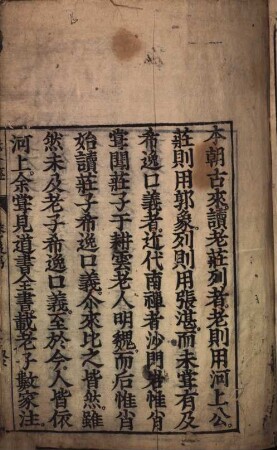 本朝古來讀老莊列者老則用河上公
莊則用郭象列則用張湛而未甞有及
希逸口義者近代南禪寺沙門岩惟肖
甞聞莊子于耕雲老人明魏而后惟肖
始讀莊子希逸口義尒來比比皆然雖
然未及老子希逸口義至於今人皆依
河上余甞見道書全書載老子數家注